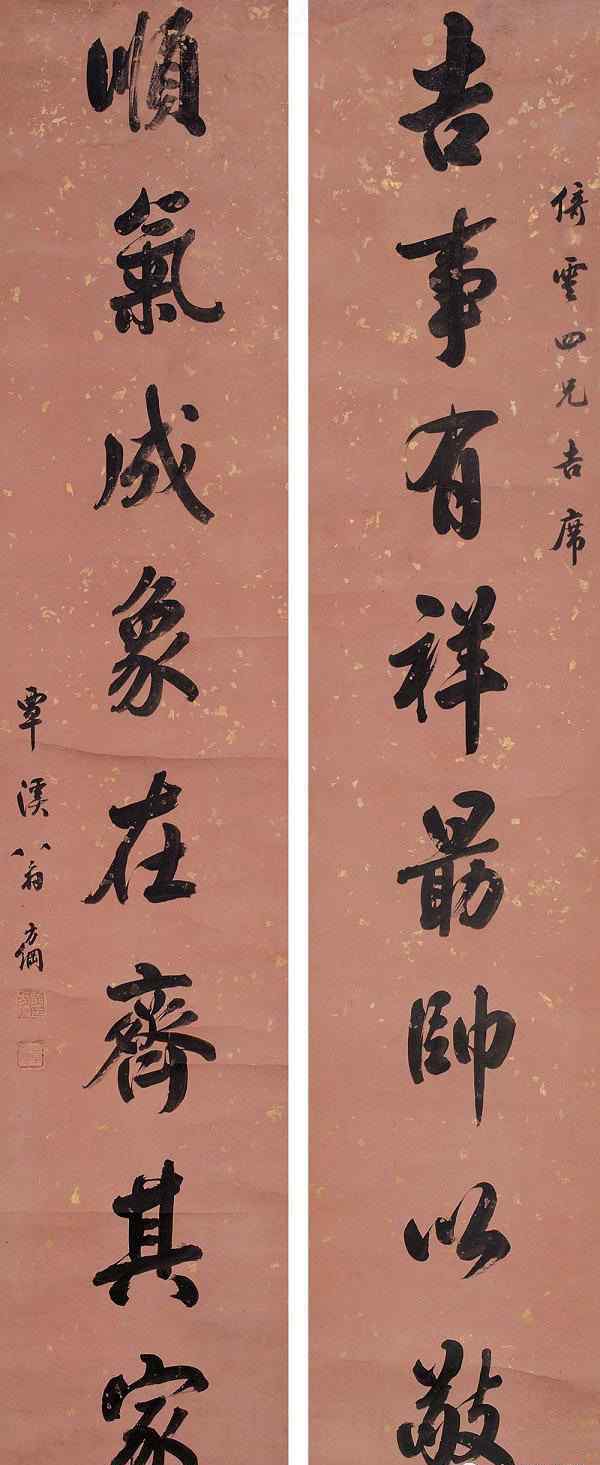 倚雲四兄吉席
吉事有祥勗帥以敬
順氣成象在齊其家
覃溪翁方綱